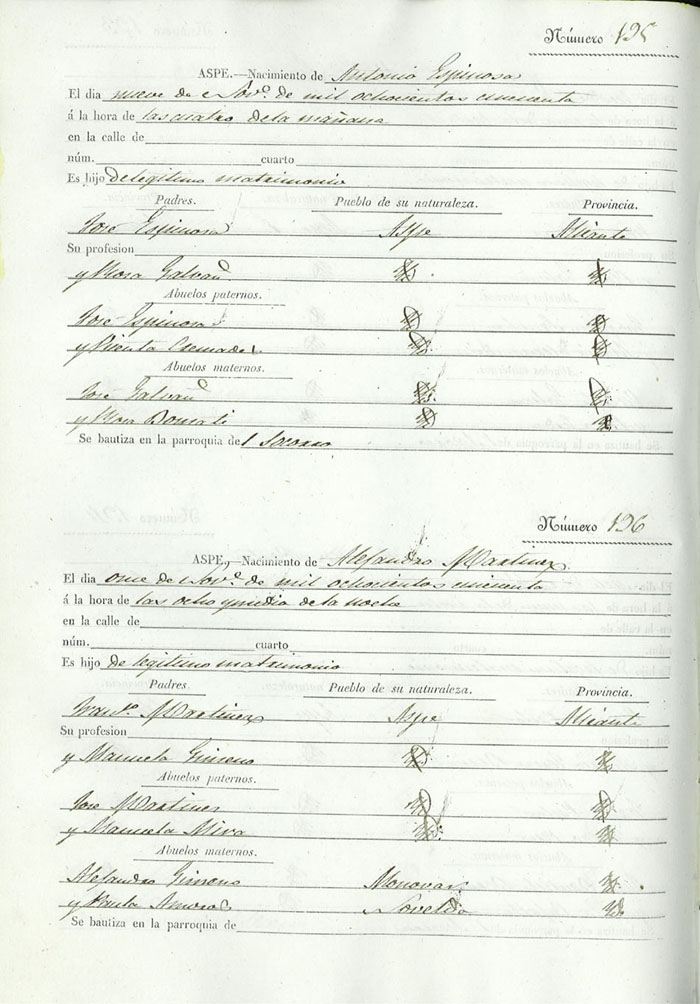 Número 195
ASPE.—Nacimiento de Antonio Espinosa
El dia nueve de Nov.e de mil ochocientos cincuenta
á la hora de las cuatro de la mañana
en la calle de
núm. cuarto
Es hijo de legitimo matrimonio
Padres. Pueblo de su naturaleza. Provincia.
José Espinosa Aspe Alicante
Su profesion
y Rosa Galvañ
Abuelos paternos.
José Espinosa
y Vicenta
Abuelos maternos.
José Galvañ
y Rosa
Se bautiza en la parroquia del Socorro
Número 196
ASPE,—Nacimiento de Alejandro Martinez
El dia once de Nov.e de mil ochocientos cincuenta
á la hora de las ocho y media de la noche
en la calle de
núm. cuarto
Es hijo de legitimo matrimonio
Padres. Pueblo de su naturaleza. Provincia.
Fran.co Martinez Aspe Alicante
Su profesion
y Manuela Gimeno
Abuelos paternos.
José Martinez
y Manuela Mira
Abuelos maternos.
Alejandro Gimeno Monovar
y Paula Amoros Novelda
Se bautiza en la parroquia de